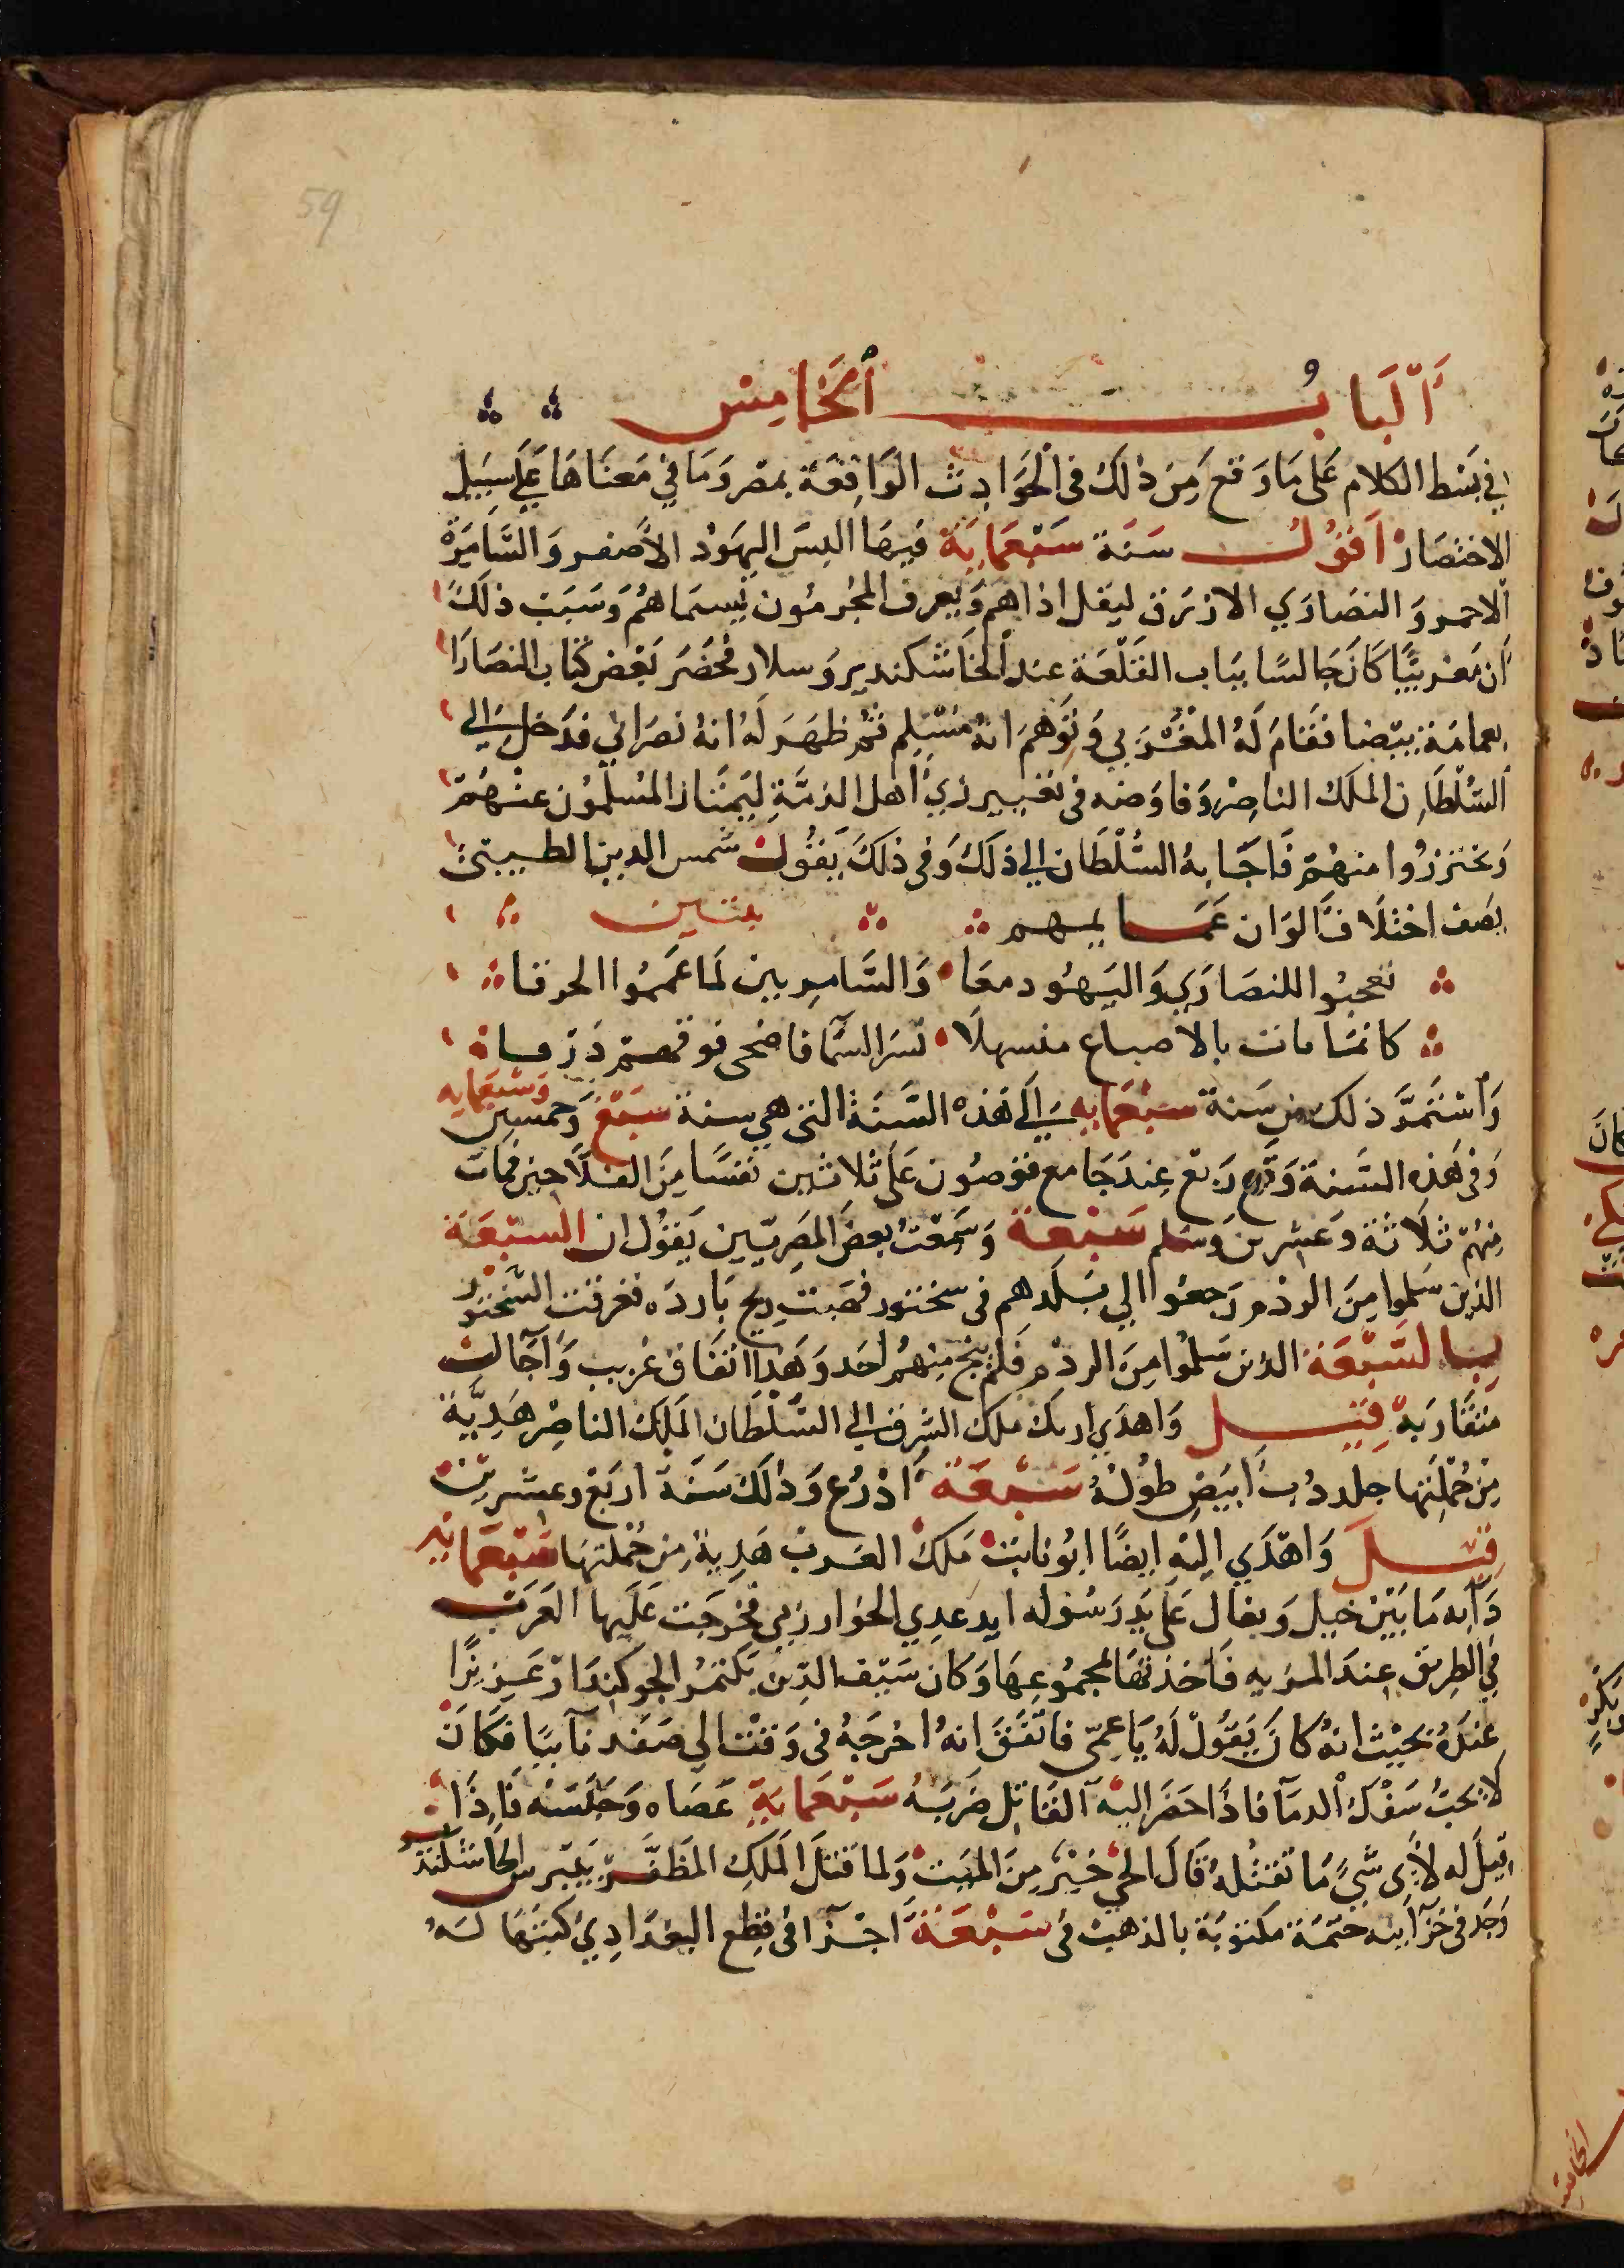 59
اَلْبابُ الخامِس
في بَسْط الكلام عَلى مَا وَقع مِن ذلك في الْحَوادِث الوَاقِعَة بمصر وَمَا في مَعنَاهَا عَلى سبيل
الاختصَار اَقوُل سَنَة سَبْعمايَة فيهَا البسَ اليهَوُد الأصفر وَالسَّامِرَة
الاحمر وَ النصَارَي الازرَق ليقل اذاهم وَيعرف المجُرمُون بسِماهُم وَسَبَب ذلكَ
أن مَغربيًا كَانَ جَالسًا ببَاب القَلْعَة عند الجَاشنكير وَسلار فحُضَر بَعْض كتاب النصَارَا
بعمامَة بيضا فقَامَ لَهُ المغْرَبي وَتَوهمَ انهُ مُسْلِم ثم ظهَرَ لَهُ انهُ نصرَاني فدَخل الي
السُّلْطَانِ الملَك الناصِر وَفاوَضه في تغيير زي أهل الذمَّةِ ليَمتَاز المُسلمُون عنْهُمْ
وَيحترزوُا منهُمْ فَاجَابهُ السُّلْطَان الي ذلَكَ وَفي ذلكَ يَقوُل شمس الدين الطيبيَ
يصَف اختلاَف اَلوَان عَمَايمهم بيتين
تعجبُوا للنصَارَي وَاليَهوُد معَا وَالسَّامِريين لمَا عمموُا الخرقا
كانمَا بات بالاصباغ منسهلاً نسَر السَّما فاضحى فوقهمْ ذرقا
وَاسْتمَرَّ ذلك من سَنة سبْعمَايه اِلَى هَذه السَّنَة التي هي سنة سَبْع وَخمسين وَسَبْعمَايه
وَفي هَذِه السَّنة وَقَع رَبع عِندَ جَامع قوصُون عَلى ثلاثين نفسًا مِنَ الفلاَّحين فمَات
مِنهُمْ ثلاَثة وَعِشرين وَسَلم سَبْعة وَسمَعْتُ بعضَ المَصرِيّين يَقوُل ان السّبْعَة
الذين سَلموا مِنَ الردْم رَجعوُا الي بَلَدهم في سختور فهَبت ريح بَاردَه فغرقت الشّختور
بالسَّبْعَة الذين سَلمُوا مِن الردْم فَلم ينج مِنهُمُ احَد وَهَذا اتفَاق غريب وَآجَال
متقَارَبة قِيل وَاهدَي ازبك ملك الشرق الي السّلْطَان الملَك الناصِر هَدِيَّة
مِن جُملَتها جلد دُب اَبيَض طوُلهُ سَبْعَة اَذرُع وَذلكَ سَنَة اربَعْ وعشرين
قِيلَ وَاهْدَي اليْهِ ايضًا ابُو ثابت مَلك الغَرب هَدِية من جُملتهَا سَبْعمَاية
دَابه مَا بَيْن خيل وَبغال عَلى يَد رَسوُله ايدغدي الخوارزمي فخرَجَت عَلَيها العَرَب
في الطريق عِندَ المريه فَاخذتهَا بمجموُعِهَا وَكانَ سَيْف الدّين بَكتمُر الجوكندَار عَزيزًا
عِندَهُ بحَيْث انهُ كانَ يَقوُلْ لَهُ يَا عَمّي فاتفَقَ انهُ اخرَجَهُ في وَقْت الى صَفَد نَايبًا فكَانَ
لاَ يحبُّ سَفْك الدمَاء فاذَا حَضَر اليْه القَاتِل ضَرَبَهُ سَبْعمَايَة عَصَاه وَحَبَسَه فَاِذَا
قِيلَ له لأي شَيْ مَا تقتُلهُ قَالَ الحيُّ خَيْر مِنَ الميت وَلما قتلَ الملَكِ المظَفَّر بَيْبَرس الجاشنكير
وَجدَ في خزَاينه ختْمَة مَكتوبَة بالذهَب في سَبْعَة اَجْزَا في قِطع البغدَادِيّ كتبَهَا لَهُ